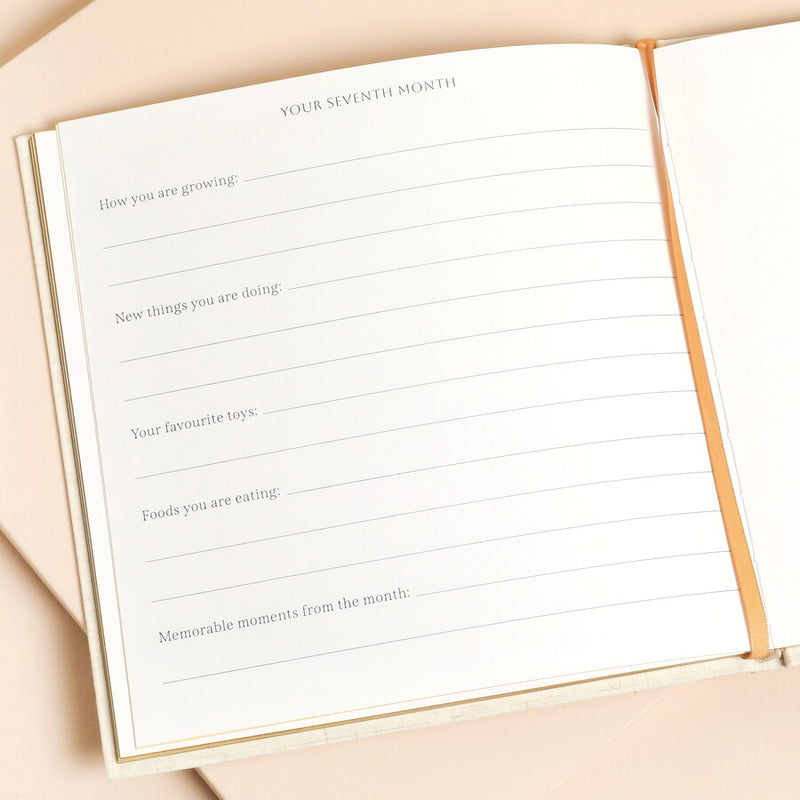 YOUR SEVENTH MONTH
How you are growing:
New things you are doing:
Your favourite toys:
Foods you are eating:
Memorable moments from the month: